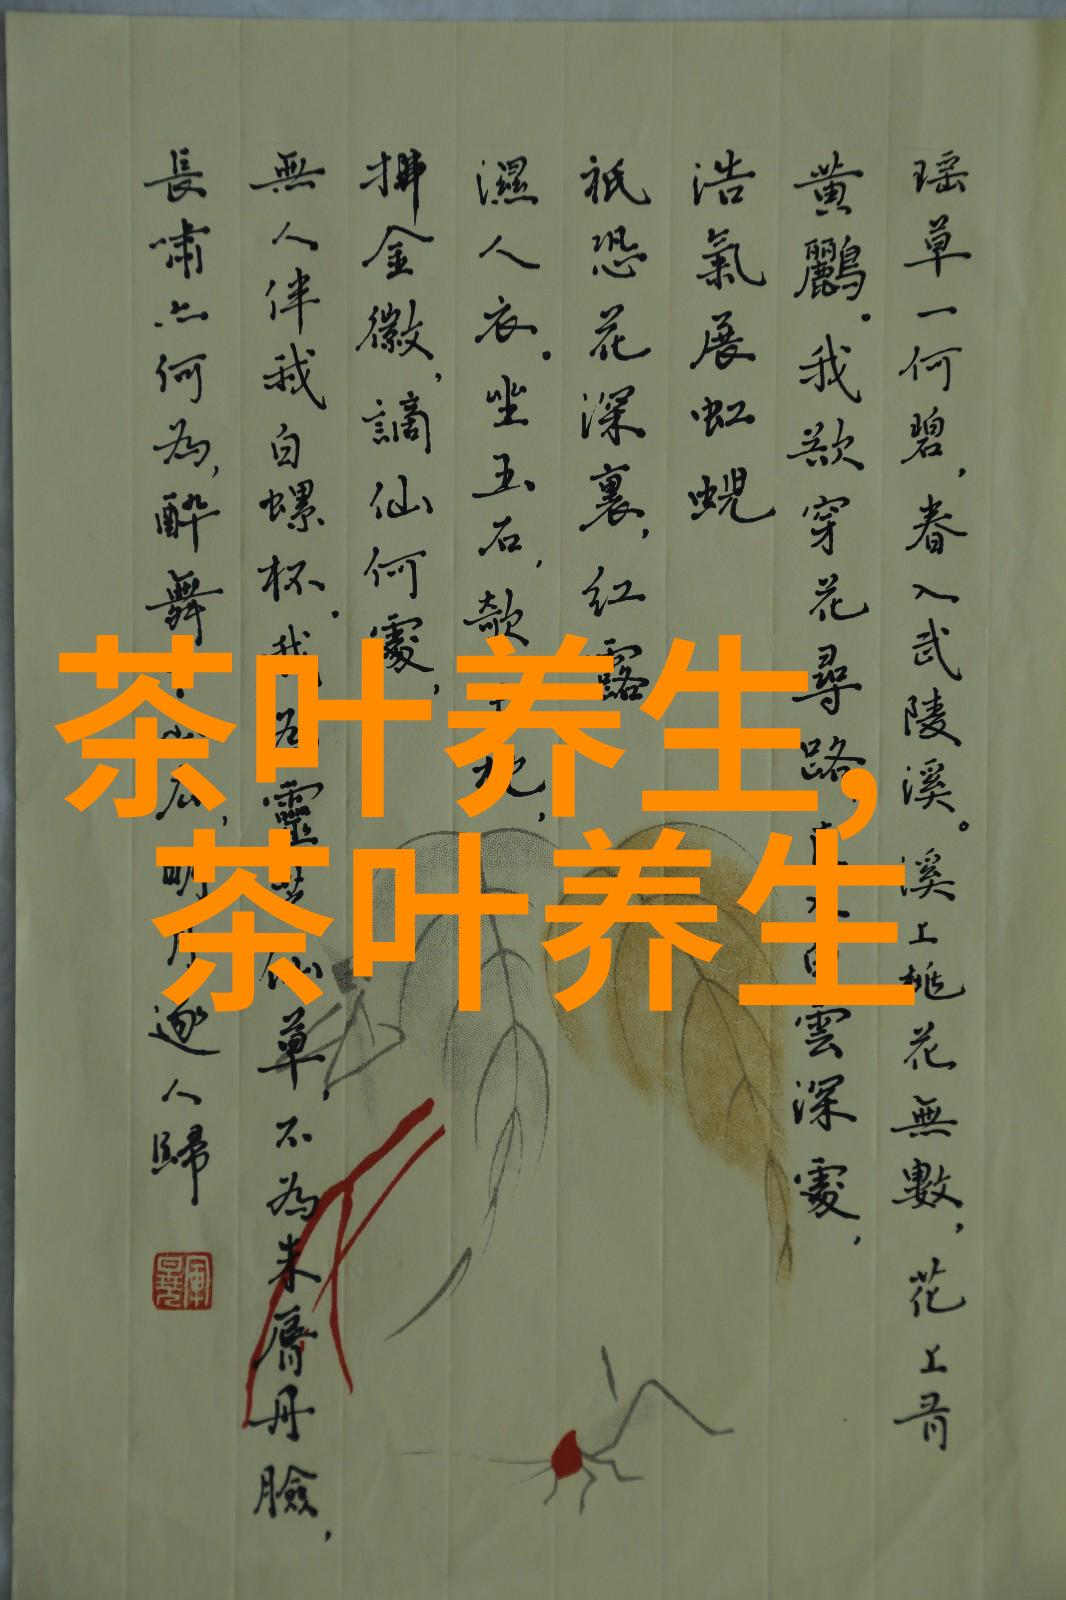 瑶草一何碧，春入武陵溪。溪上桃花無數，花上有
黄鸝。我欲穿花尋路，白雲深處，
浩氣展虹蜺
祇恐花深裏，紅露
濕人衣。坐玉石，欹
拂金徽，謫仙何處，
無人伴我白螺杯。我為靈芝仙草，不為朱脣丹臉，
長嘯亦何為，醉舞明月逐人歸
茶叶养生,
茶叶养生